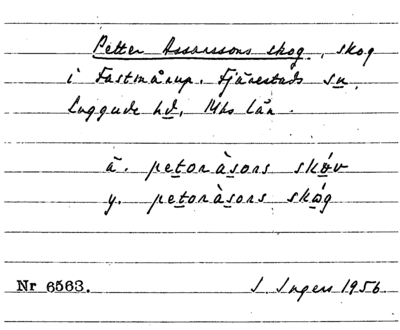 Petter Assarssons skog, skog
i Fastmårup. Fjärestads sn,
Luggude hd, Mhs län.
ä. petoràsors skǿv
y. petoràsors skǻg
Nr 6563.
I. Ingers 1956